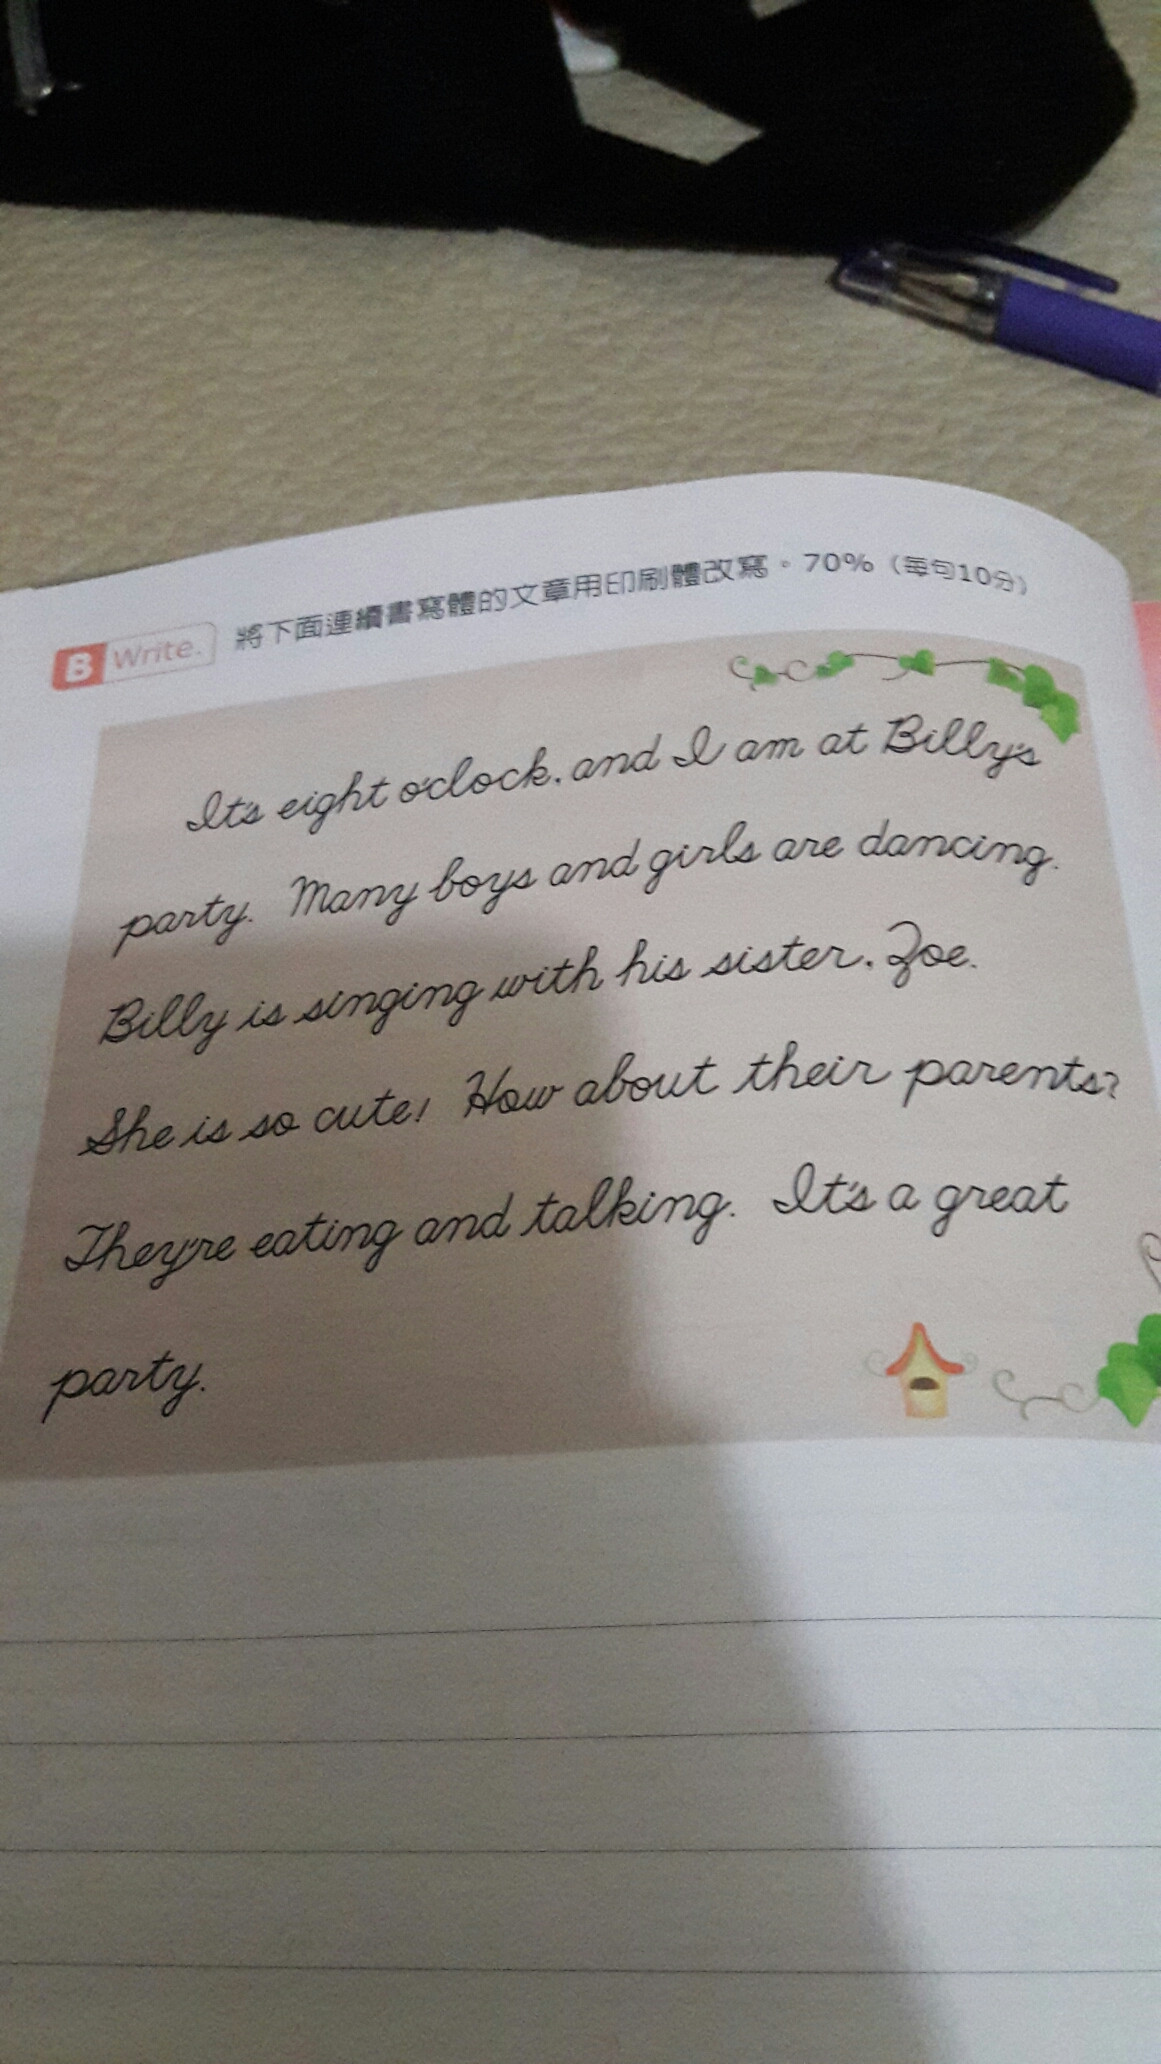 B Write. 將下面連續書寫體的文章用印刷體改寫。70%（每句10分）
It's eight o'clock, and I am at Billy's
party. Many boys and girls are dancing.
Billy is singing with his sister, Zoe.
She is so cute! How about their parents?
They're eating and talking. It's a great
party.